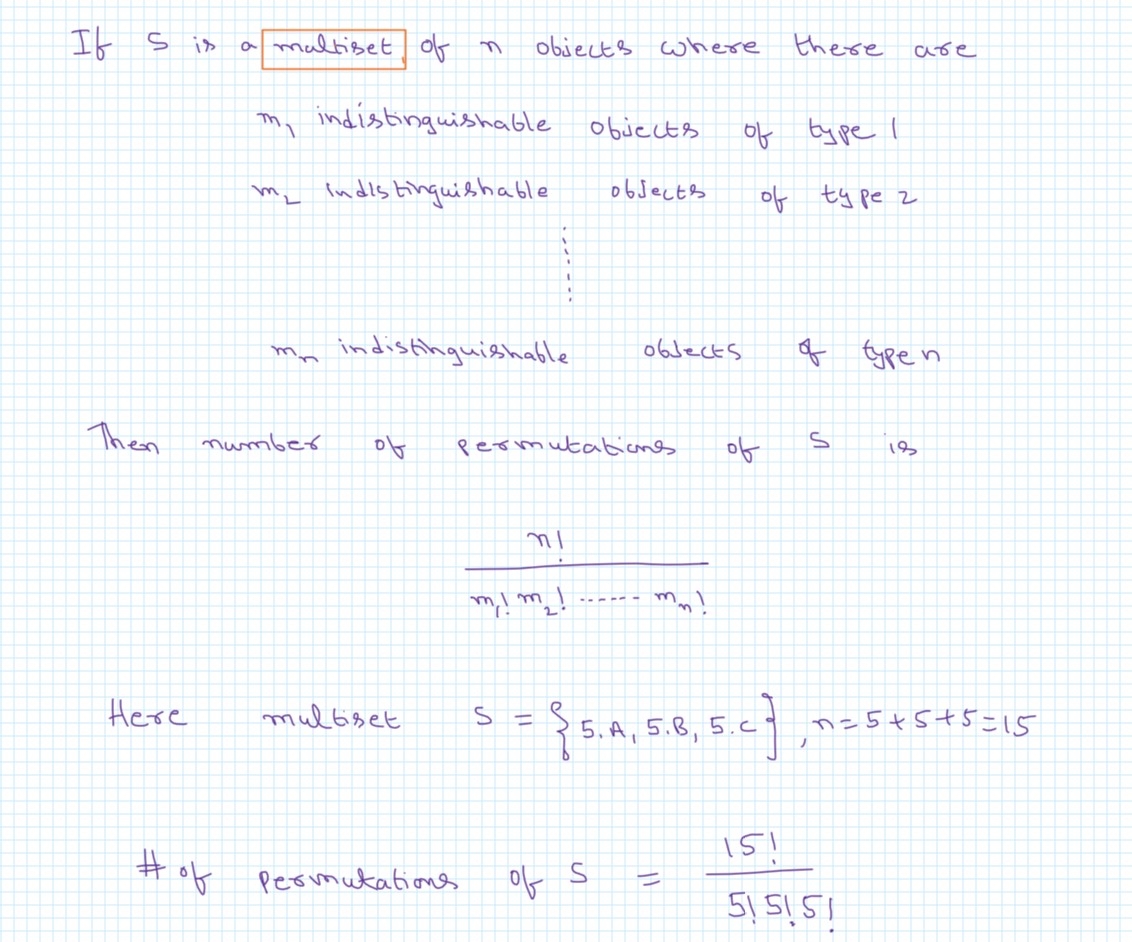 If S is a multiset of n objects where there are
m₁ indistinguishable objects of type 1
m₂ indistinguishable objects of type 2
mₙ indistinguishable objects of type n
Then number of permutations of S is
n!
m₁! m₂! ------ mₙ!
Here multiset S = {5.A, 5.B, 5.C}, n=5+5+5=15
# of permutations of S = 15!
5! 5! 5!